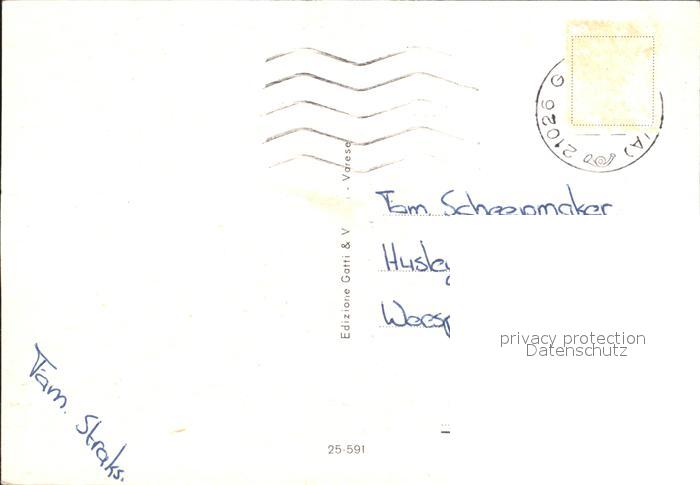 21026 G
(A)
Edizione Gatti & V - Varese
Fam. Scheepmaker
Husley
Weesp
privacy protection
Datenschutz
Fam. Straks.
25-591